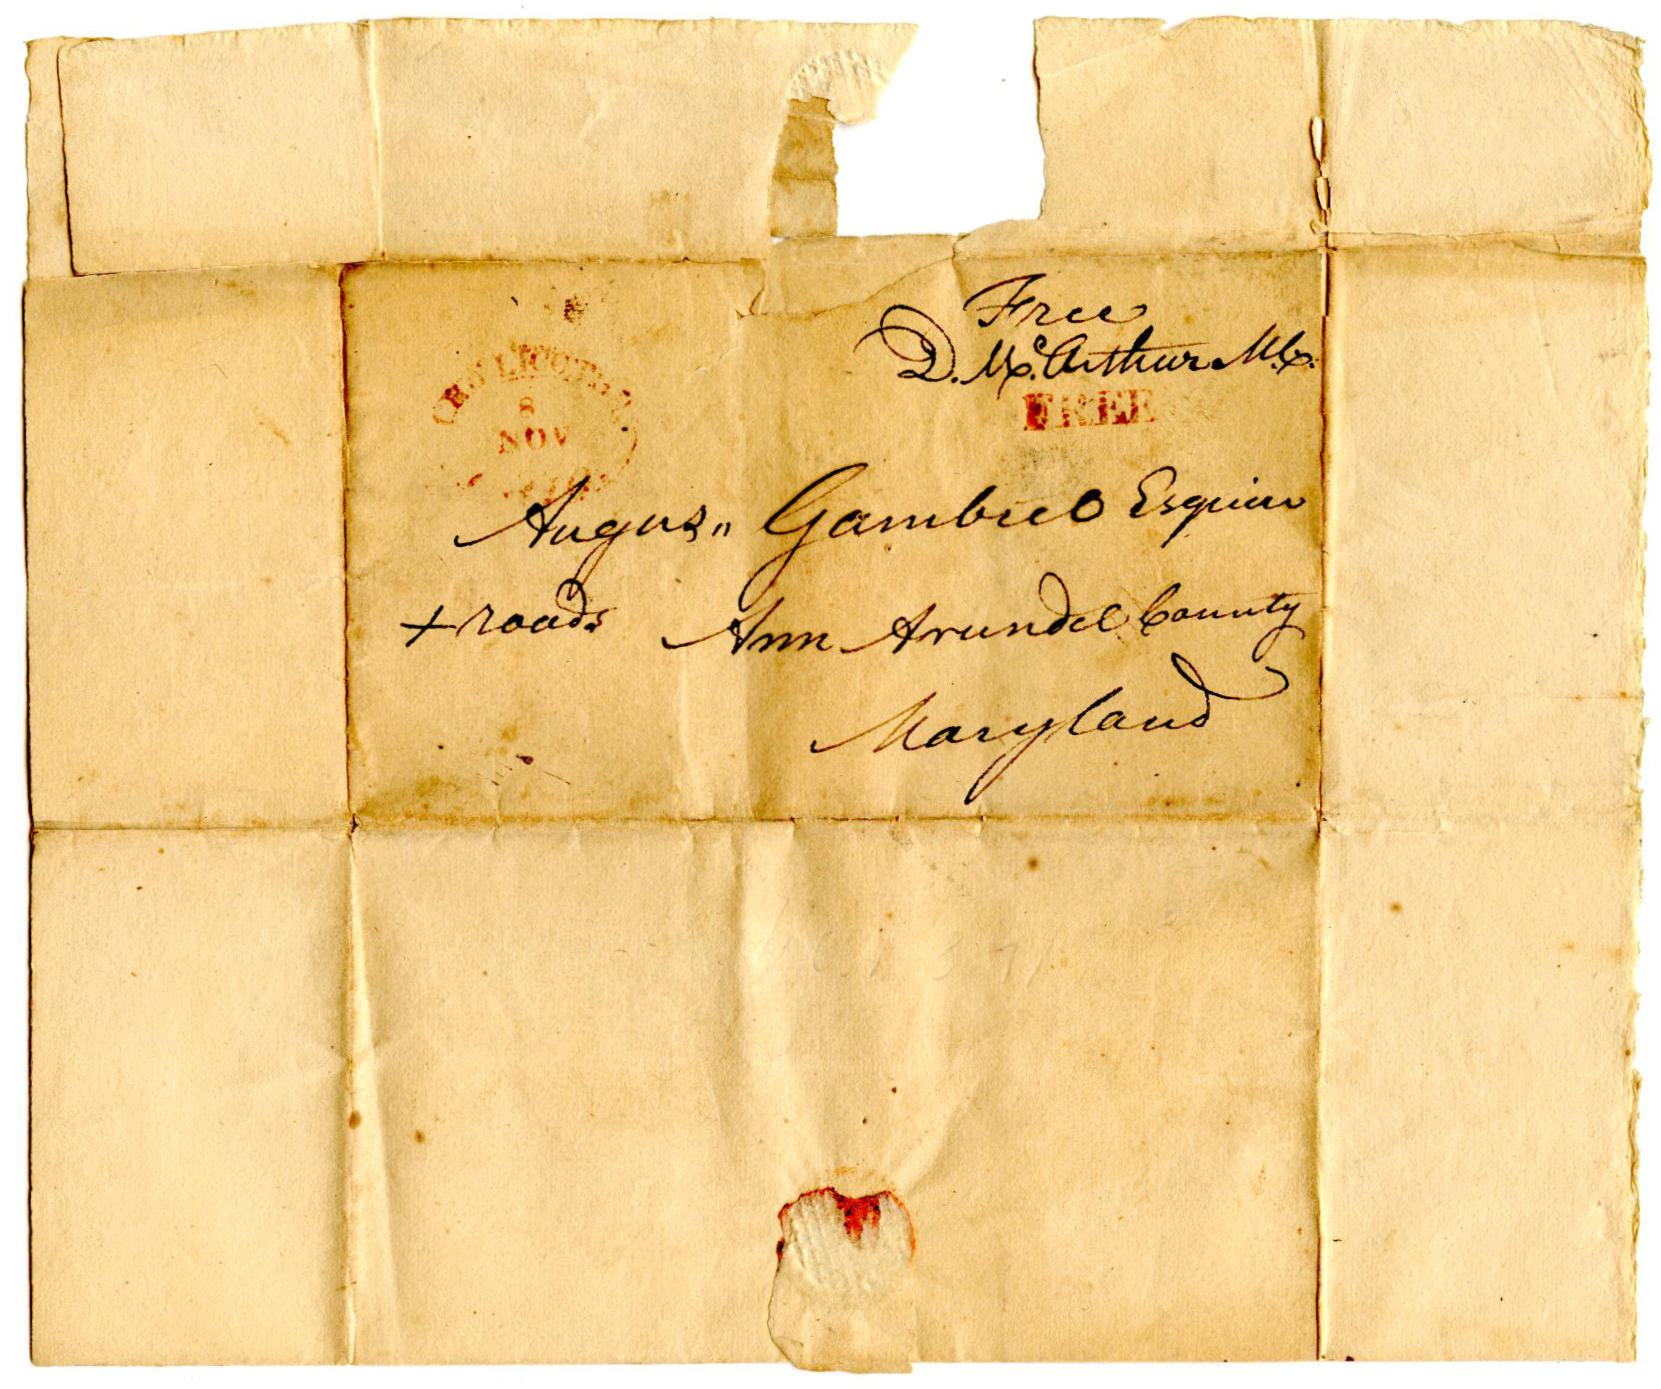 Free
D. McArthur M.C.
FREE
CHILLICOTHE
8
NOV
OHIO
Augus,, Gambriel Esquire
+ roads Ann Arundel County
Maryland